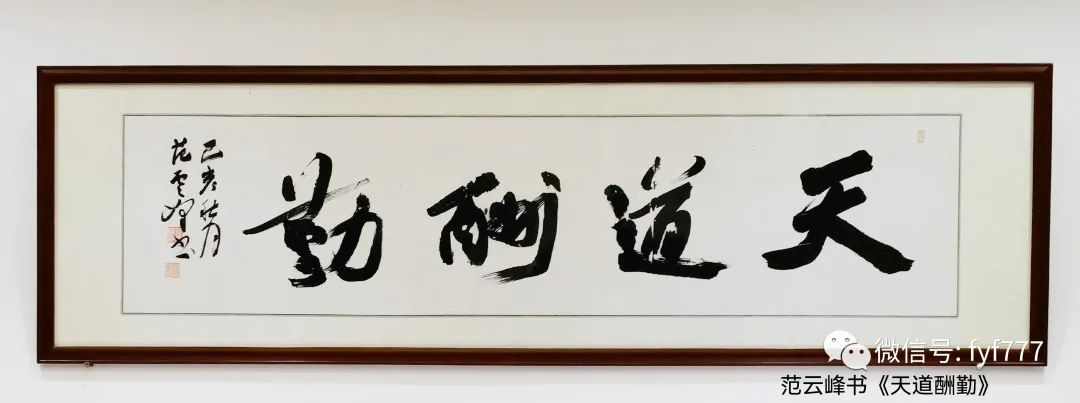 天道酬勤
己亥秋月
范云峰书
微信号: fyf777
范云峰书《天道酬勤》